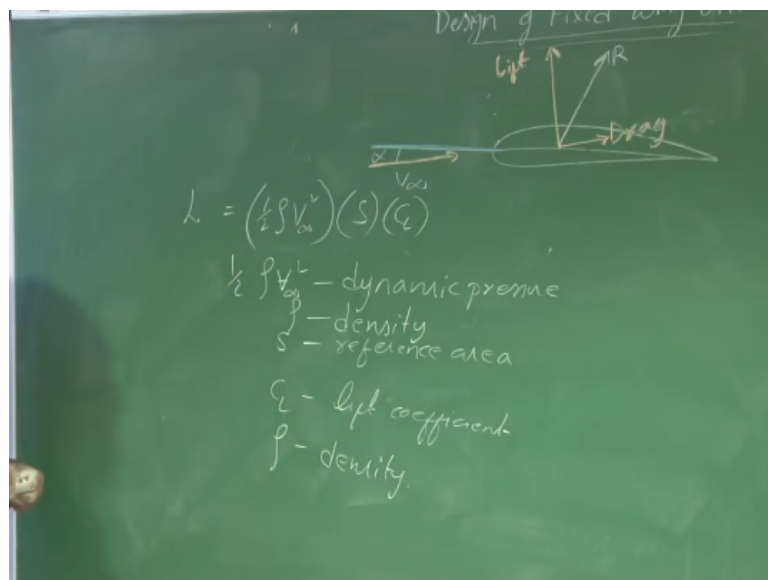 Design of Fixed Wing
Lift
R
Drag
α
V∞
L = (½ρV∞²)(S)(C_L)
½ρV∞² – dynamic pressure
ρ – density
S – reference area
C_L – lift coefficient
ρ – density.